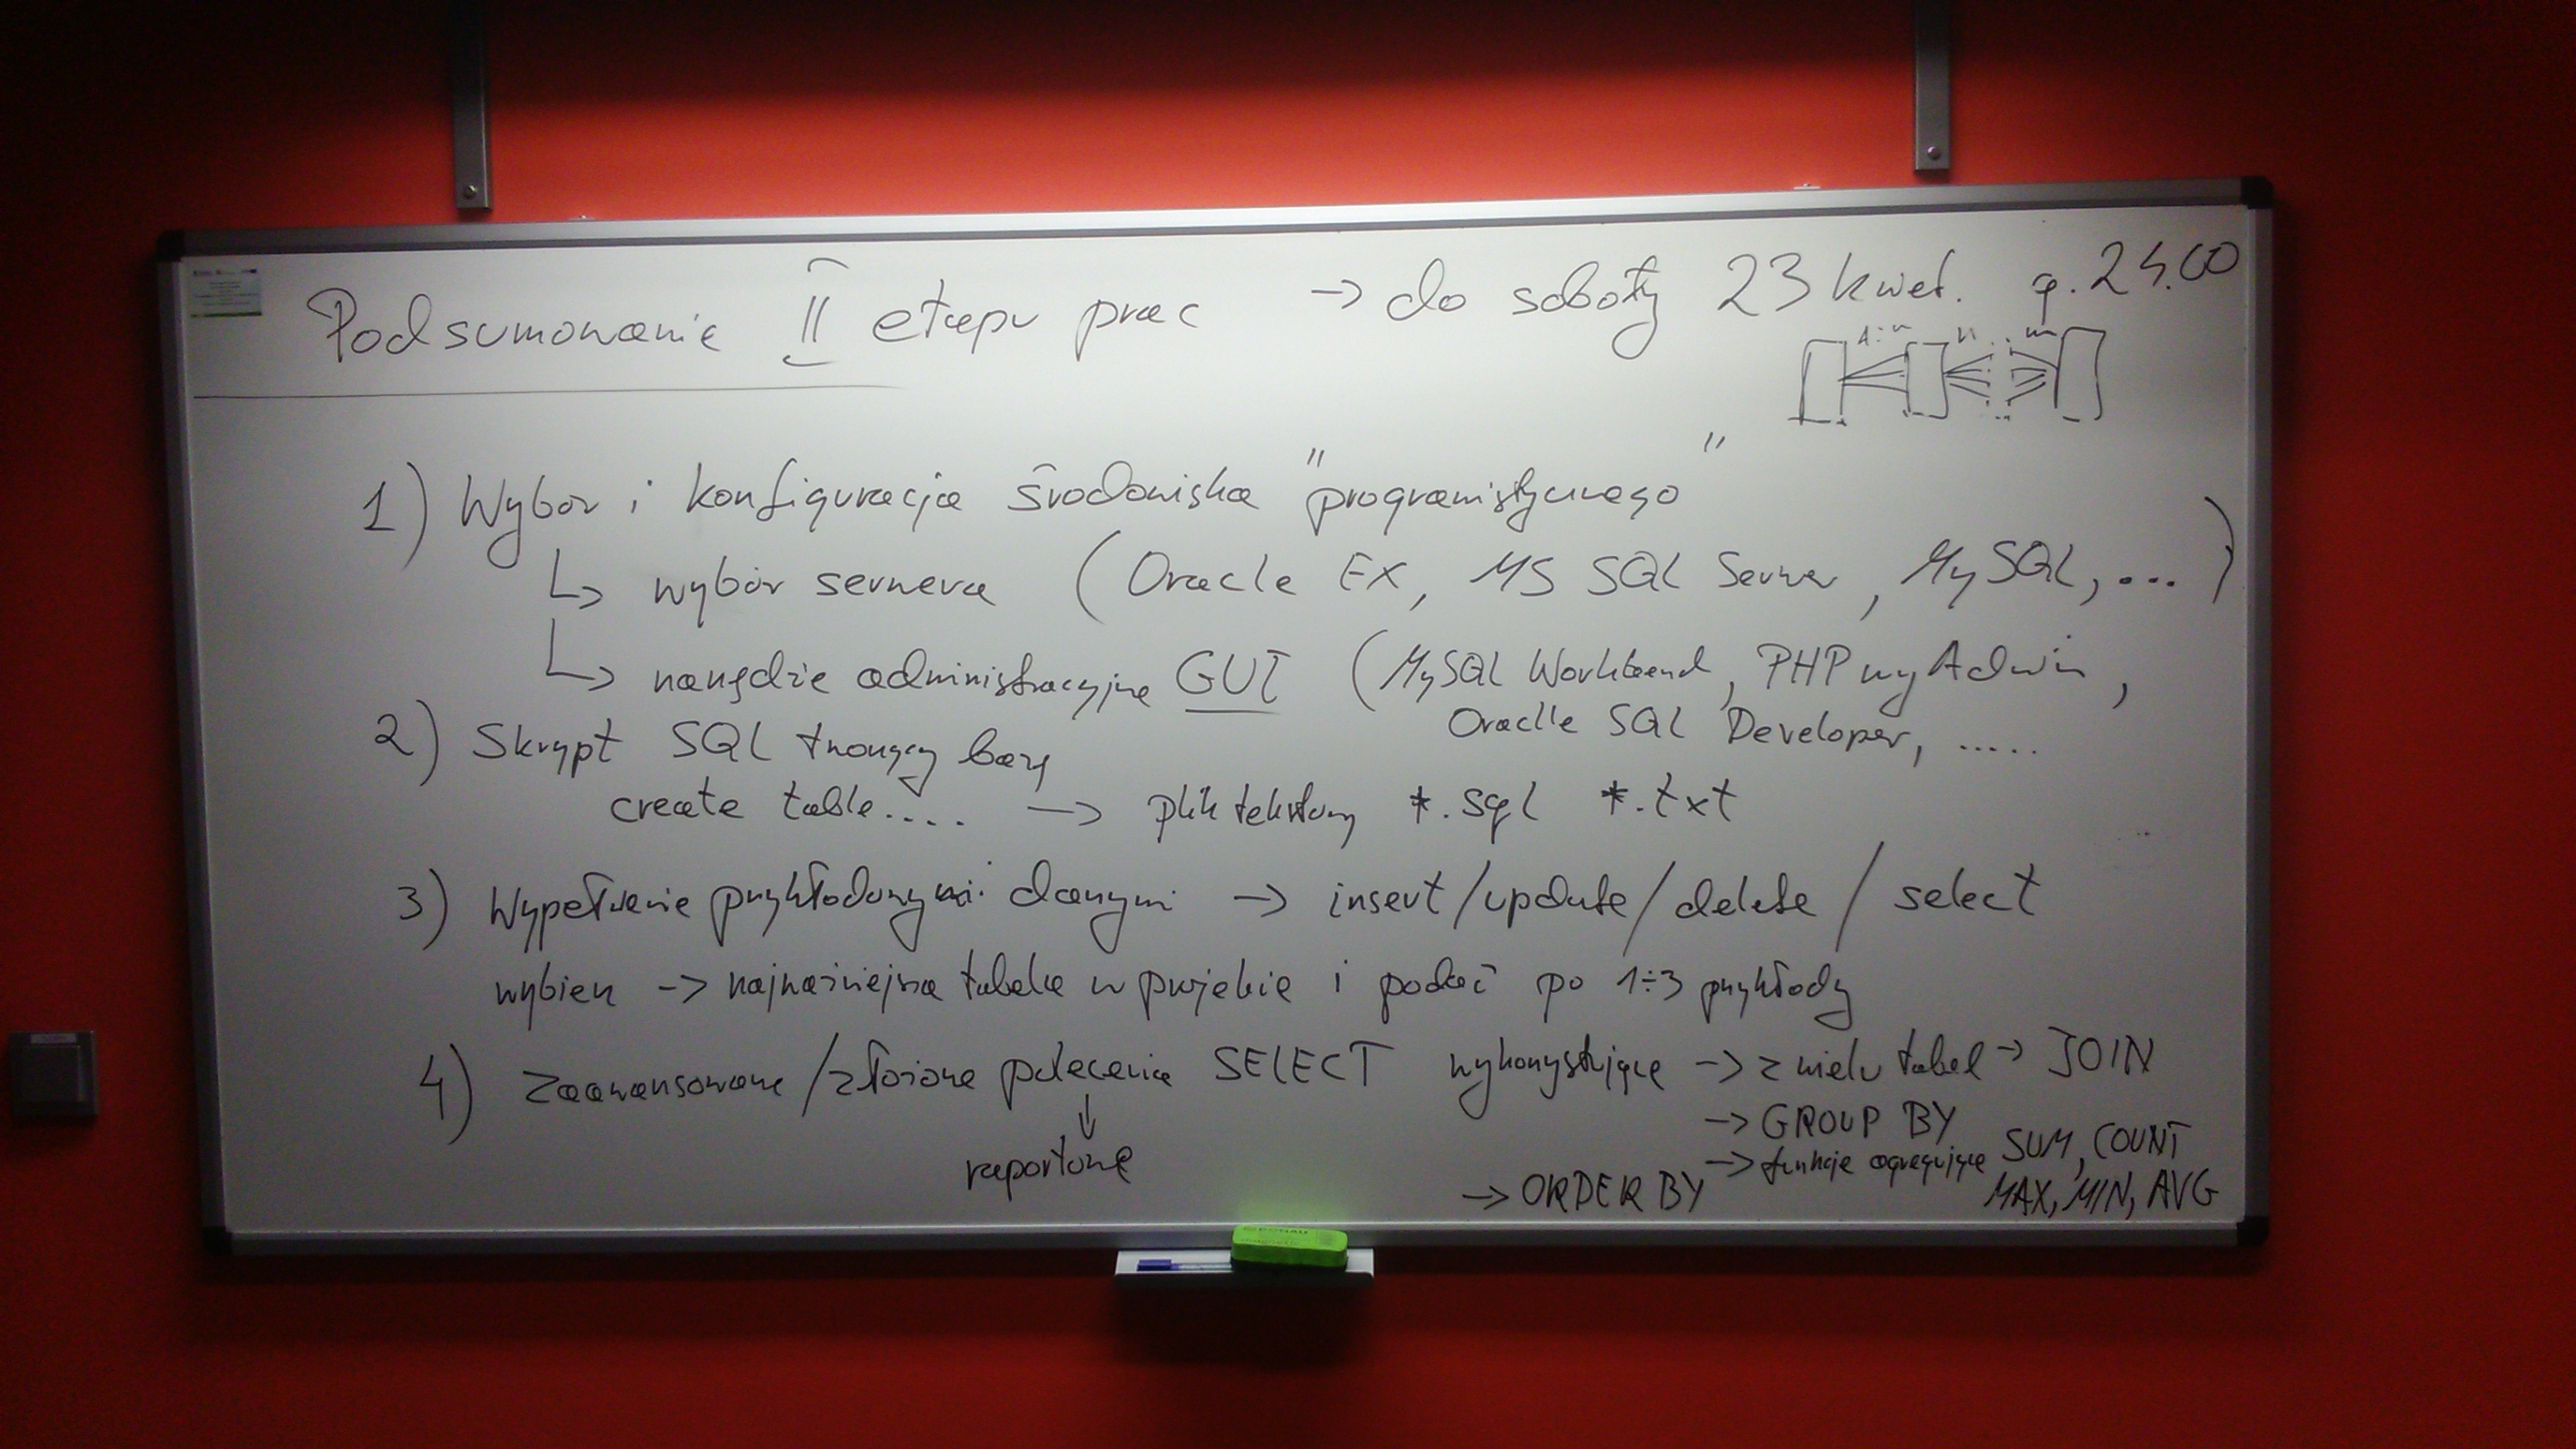 Podsumowanie II etapu prac → do soboty 23 kwiet. g. 24.00
1:n n . . m
1) Wybór i konfiguracja środowiska "programistycznego"
↳ wybór serwera (Oracle EX, MS SQL Server, MySQL, ... )
↳ narzędzie administracyjne GUI (MySQL Workbend, PHP myAdmin,
Oraclle SQL Developer, .....
2) Skrypt SQL tworzący bazę
create table.... → plik tekstowy *.sql *.txt
3) Wypełnienie przykładowymi danymi → insert/update/delete/select
wybierz → najważniejsza tabela w projekcie i podać po 1÷3 przykłady
4) Zaawansowane/złożone polecenia SELECT wykorzystujące → z wielu tabel → JOIN
↓
raportowe
→ GROUP BY
→ funkcje agregujące SUM, COUNT
MAX, MIN, AVG
→ ORDER BY